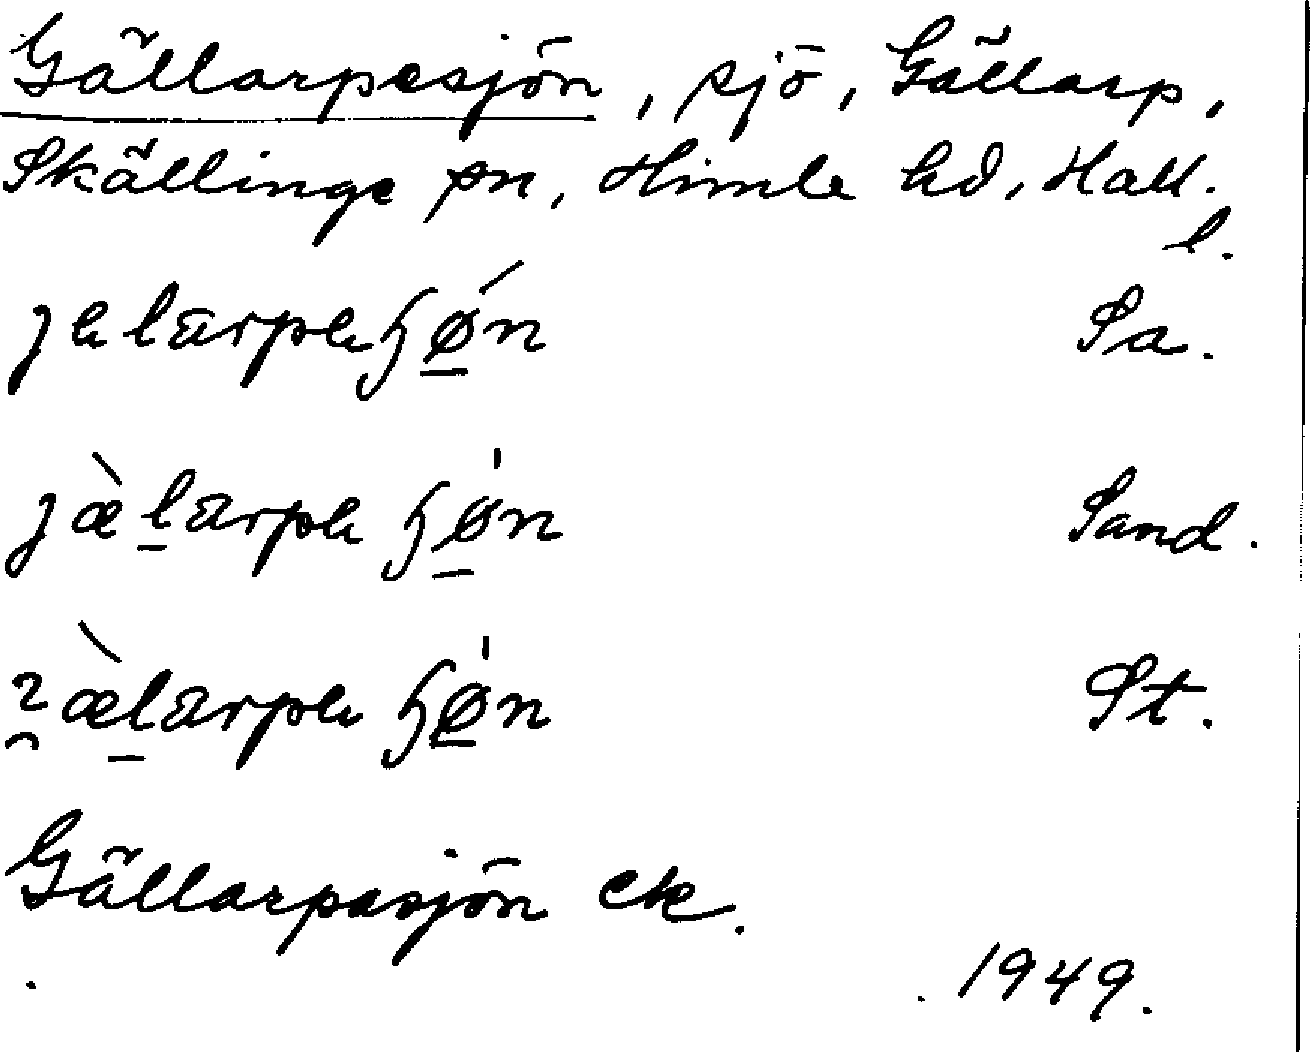 Gällarpesjön, sjö, Gällarp,
Skällinge sn, Himle hd, Hall.
l.
jelarpeɧǿn Sa.
jæ̀l̠arpe ɧø̠ˈn Sand.
æ̀l̠arpe ɧø̠ˈn St.
Gällarpasjön ek.
1949.